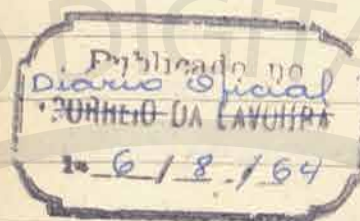 Publicado no
Diario Oficial
CORREIO DA LAVOURA
6 / 8 / 64